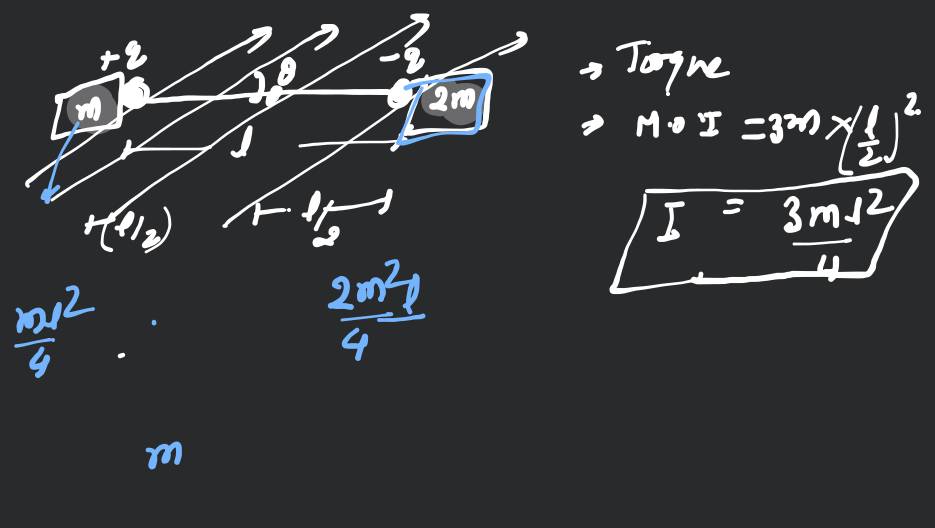 +q θ -q
m 2m
l
(l/2) l/2
→ Torque
→ M.O.I = 3m × (l/2)²
I = 3ml²/4
ml²/4 2m²l/4
m